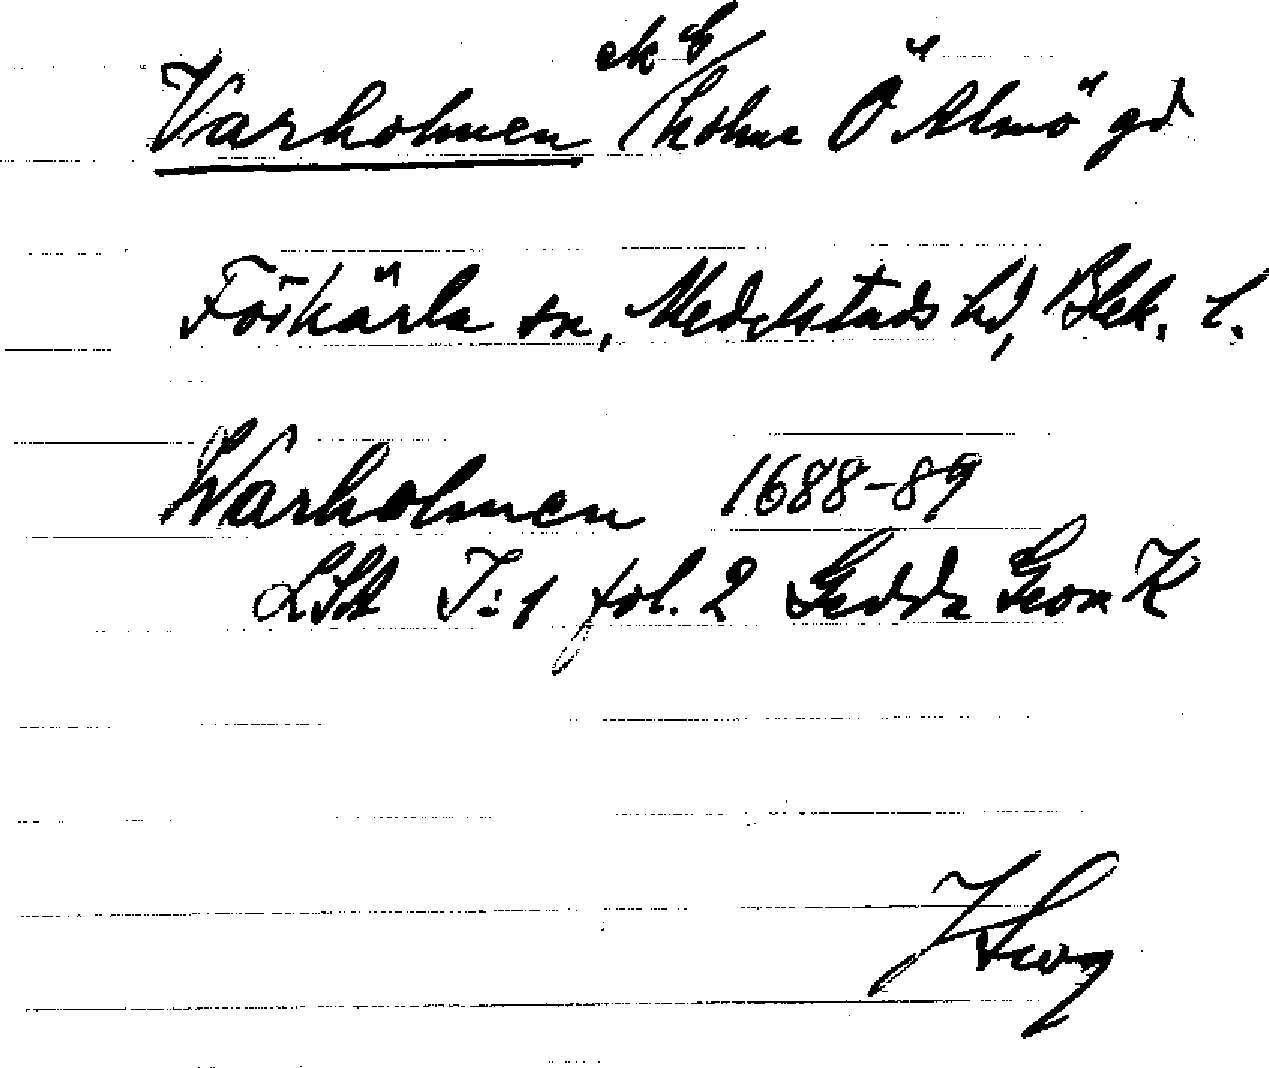 ek G
Varholmen holme Ö Almö gd
Förkärla sn, Medelstads hd, Blek. l.
Warholmen 1688-89
LSA I:1 fol. 2 Gedda Geom K